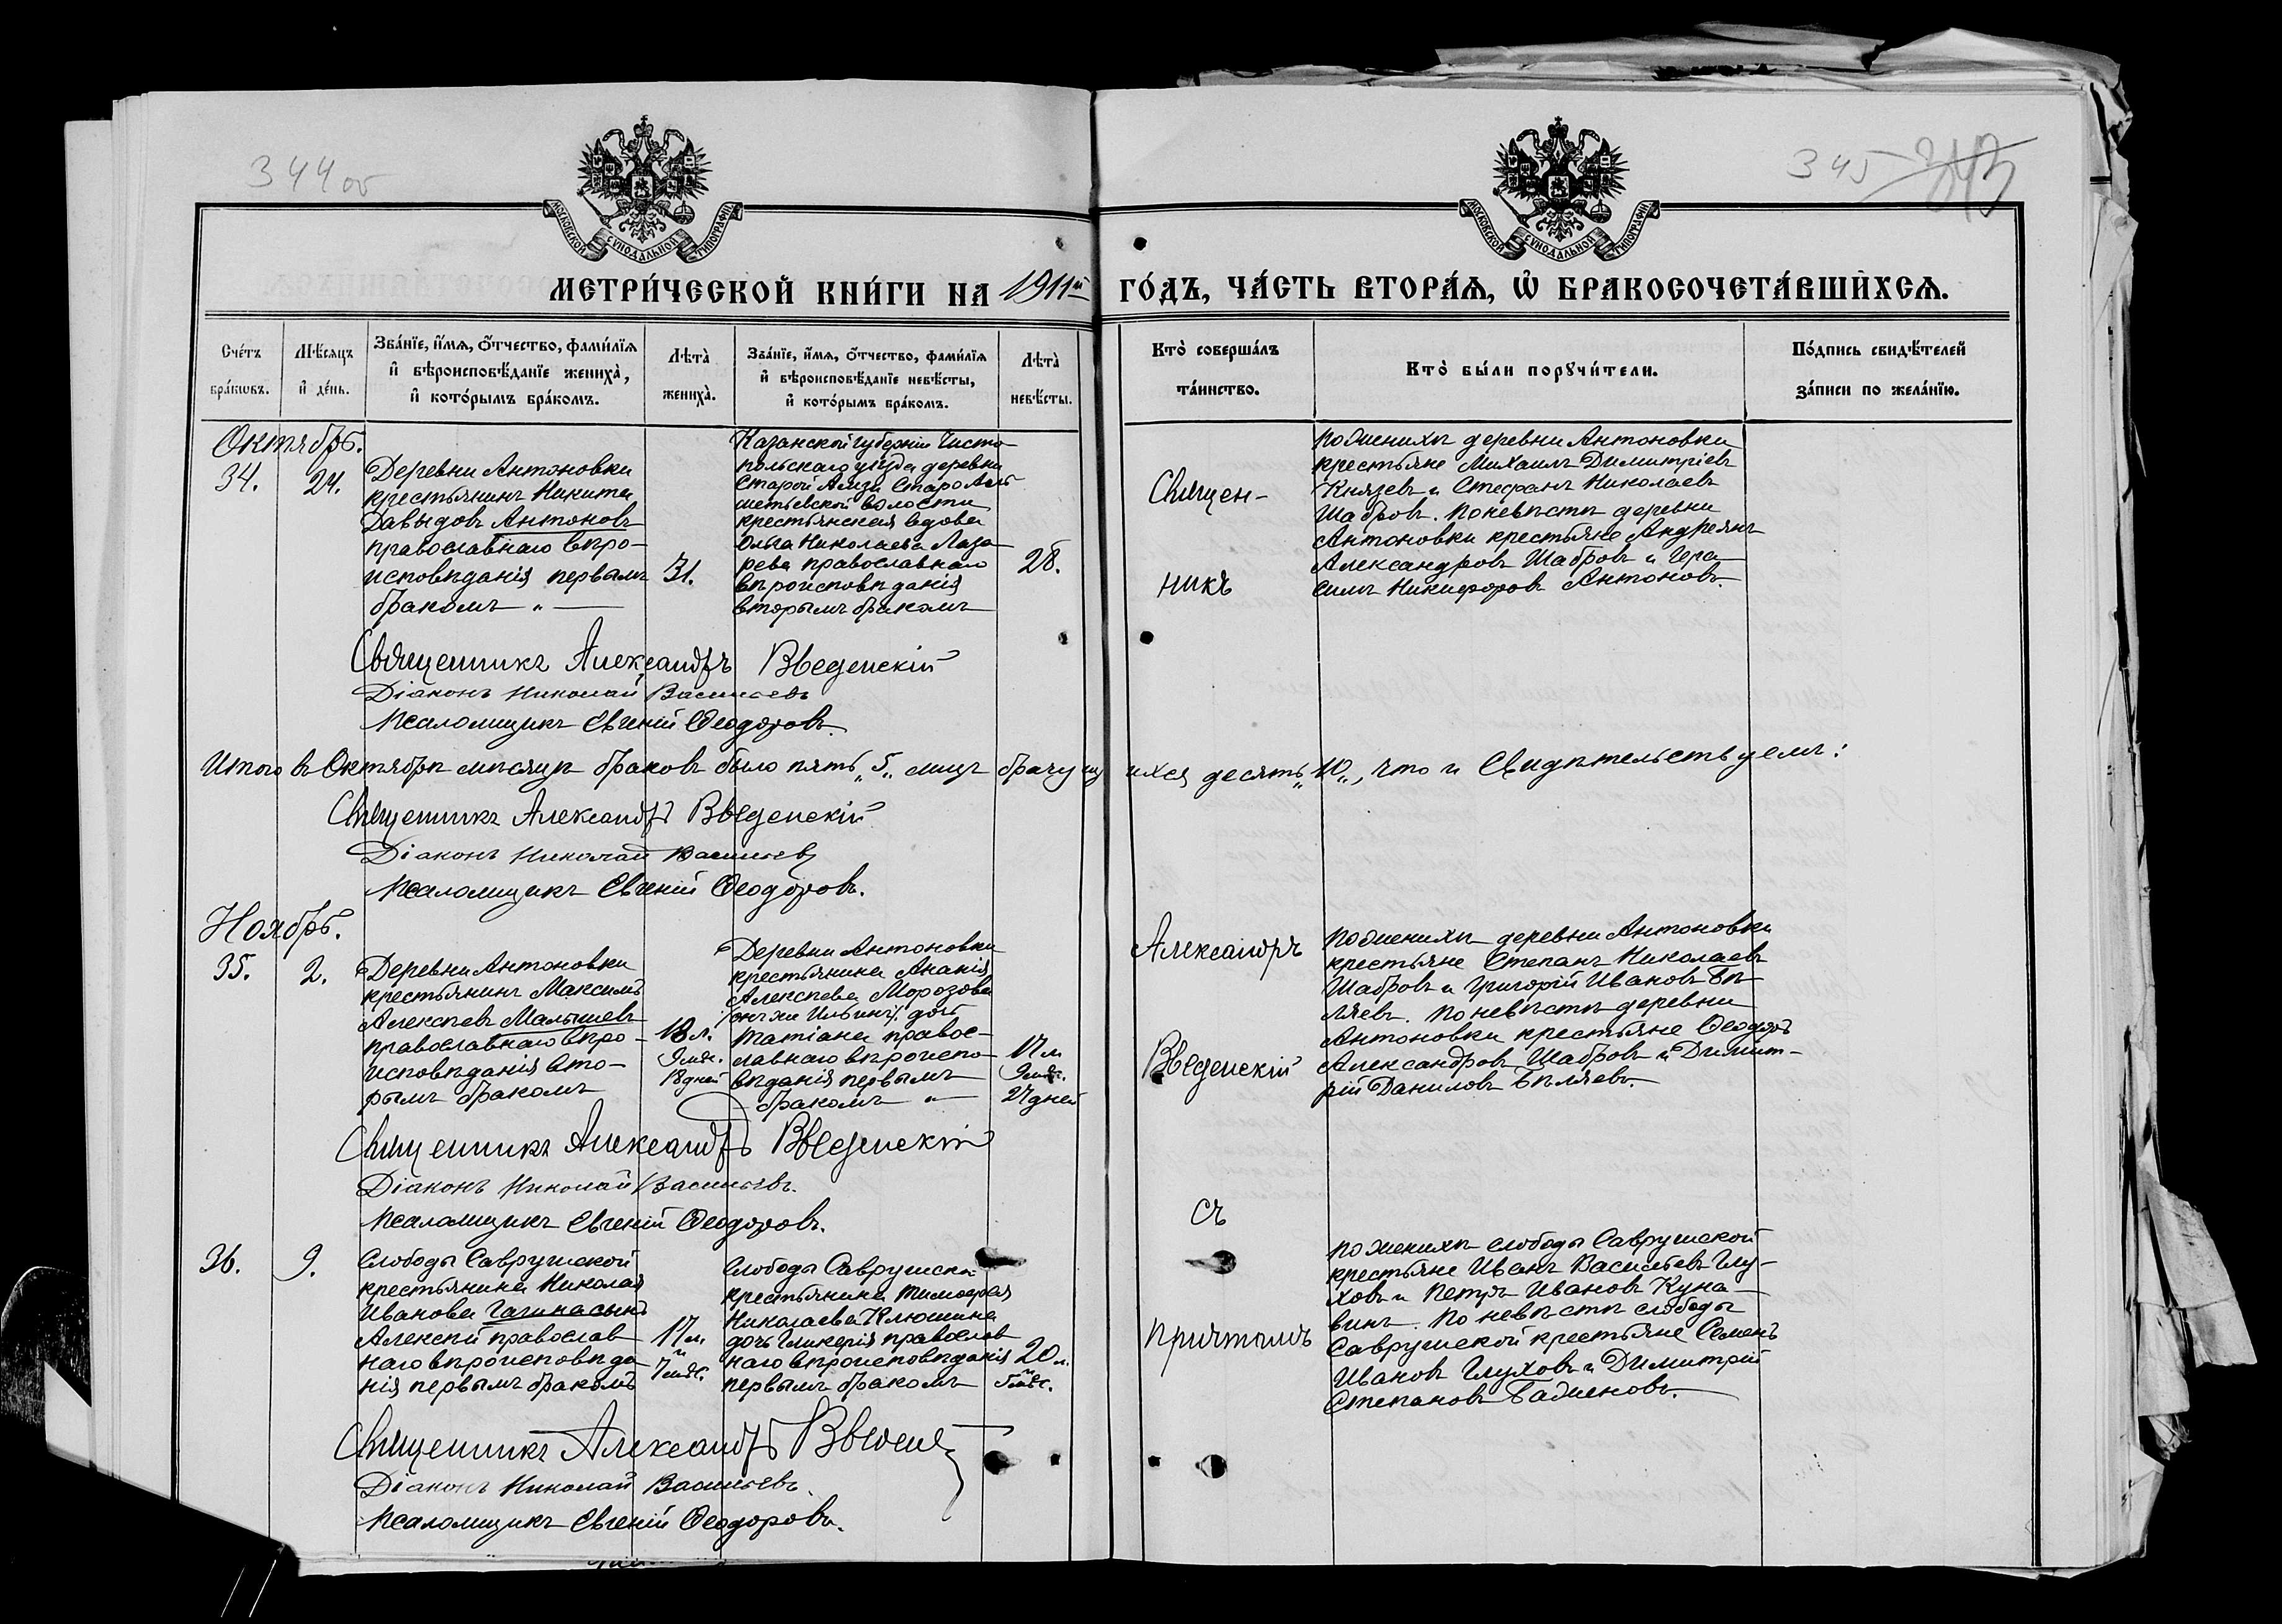 344 об
345
343
МОСКОВСКОЙ СѴНОДАЛЬНОЙ ТИПОГРАФІИ
МОСКОВСКОЙ СѴНОДАЛЬНОЙ ТИПОГРАФІИ
МЕТРИ́ЧЕСКОЙ КНИ́ГИ НА 1911й ГО́ДЪ, ЧА́СТЬ ВТОРА́Ѧ, Ѽ БРАКОСОЧЕТА́ВШИХСѦ.
Сче́тъ бра́кѡвъ.
Мѣ́сяцъ и де́нь.
Зва́нїе, и҆́мѧ, ѻ҆́тчество, фами́лїѧ
и҆ вѣроисповѣ́данїе жениха̀,
и҆ кото́рымъ бра́комъ.
Лѣта̀ жениха̀.
Зва́нїе, и҆́мѧ, ѻ҆́тчество, фами́лїѧ
и҆ вѣроисповѣ́данїе невѣ́сты,
и҆ кото́рымъ бра́комъ.
Лѣта̀ невѣ́сты.
Кто̀ соверша́лъ
та́инство.
Кто̀ бы́ли порꙋчи́тели.
По́дпись свидѣ́телей
за́писи по жела́нїю.
Октябрь.
34.
24.
Деревни Антоновки
крестьянинъ Никита
Давыдовъ Антоновъ
православнаго вѣро-
исповѣданія первымъ
бракомъ „ —
31.
Казанской губерніи Чисто-
польскаго уѣзда деревни
Старой Амзи Старо Аль-
метьевской волости
крестьянская вдова
Ольга Николаева Лаза-
рева православнаго
вѣроисповѣданія
вторымъ бракомъ
28.
Священ-
никъ
По женихѣ деревни Антоновки
крестьяне Михаилъ Димитріевъ
Князевъ и Стефанъ Николаевъ
Шабровъ. По невѣстѣ деревни
Антоновки крестьяне Андреянъ
Александровъ Шабровъ и Гера-
симъ Никифоровъ Антоновъ.
Священникъ Александръ Введенскій
Діаконъ Николай Васильевъ
Псаломщикъ Евгеній Ѳеодоровъ.
Итого въ Октябрѣ мѣсяцѣ браковъ было пять „5„ лицъ брачущихся десять „10„, что и свидѣтельствуемъ:
Священникъ Александръ Введенскій
Діаконъ Николай Васильевъ
Псаломщикъ Евгеній Ѳеодоровъ.
Ноябрь.
35.
2.
Деревни Антоновки
крестьянинъ Максимъ
Алексѣевъ Малышевъ
православнаго вѣро-
исповѣданія вто-
рымъ бракомъ
18 л.
9 мѣс.
18 дней
Деревни Антоновки
крестьянина Ананія
Алексѣева Морозова
(онъ же Ильинъ) дочь
Татіана правос-
лавнаго вѣроиспо-
вѣданія первымъ
бракомъ „ —
17 л.
9 мѣс.
27 дней
Александръ
Введенскій
По женихѣ деревни Антоновки
крестьяне Степанъ Николаевъ
Шабровъ и Григорій Ивановъ Бѣ-
ляевъ. По невѣстѣ деревни
Антоновки крестьяне Ѳеодоръ
Александровъ Шабровъ и Димит-
рій Даниловъ Бѣляевъ.
Священникъ Александръ Введенскій
Діаконъ Николай Васильевъ.
Псаломщикъ Евгеній Ѳеодоровъ.
съ
36.
9.
Слободы Саврушской
крестьянина Николая
Иванова Гагина сынъ
Алексѣй православ-
наго вѣроисповѣда-
нія первымъ бракомъ
17 л.
и
7 мѣс.
Слободы Саврушск
крестьянина Тимоѳея
Николаева Клюшина
дочь Гликерія православ-
наго вѣроисповѣданія
первымъ бракомъ
20 л.
и
5 мѣс.
причтомъ
По женихѣ слободы Саврушской
крестьяне Иванъ Васильевъ Глу-
ховъ и Петръ Ивановъ Куна-
винъ. По невѣстѣ слободы
Саврушской крестьяне Семенъ
Ивановъ Глуховъ и Димитрій
Степановъ Баженовъ.
Священникъ Александръ Введенскій
Діаконъ Николай Васильевъ.
Псаломщикъ Евгеній Ѳеодоровъ.